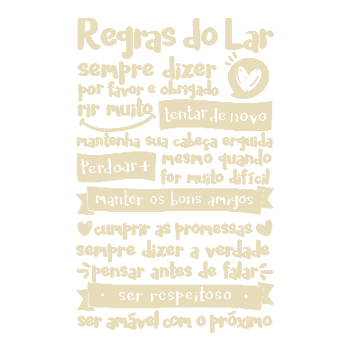 Regras do Lar
sempre dizer
por favor e obrigado
rir muito
tentar de novo
mantenha sua cabeça erguida
Perdoar+
mesmo quando
for muito difícil
manter os bons amigos
cumprir as promessas
sempre dizer a verdade
pensar antes de falar
ser respeitoso
ser amável com o próximo